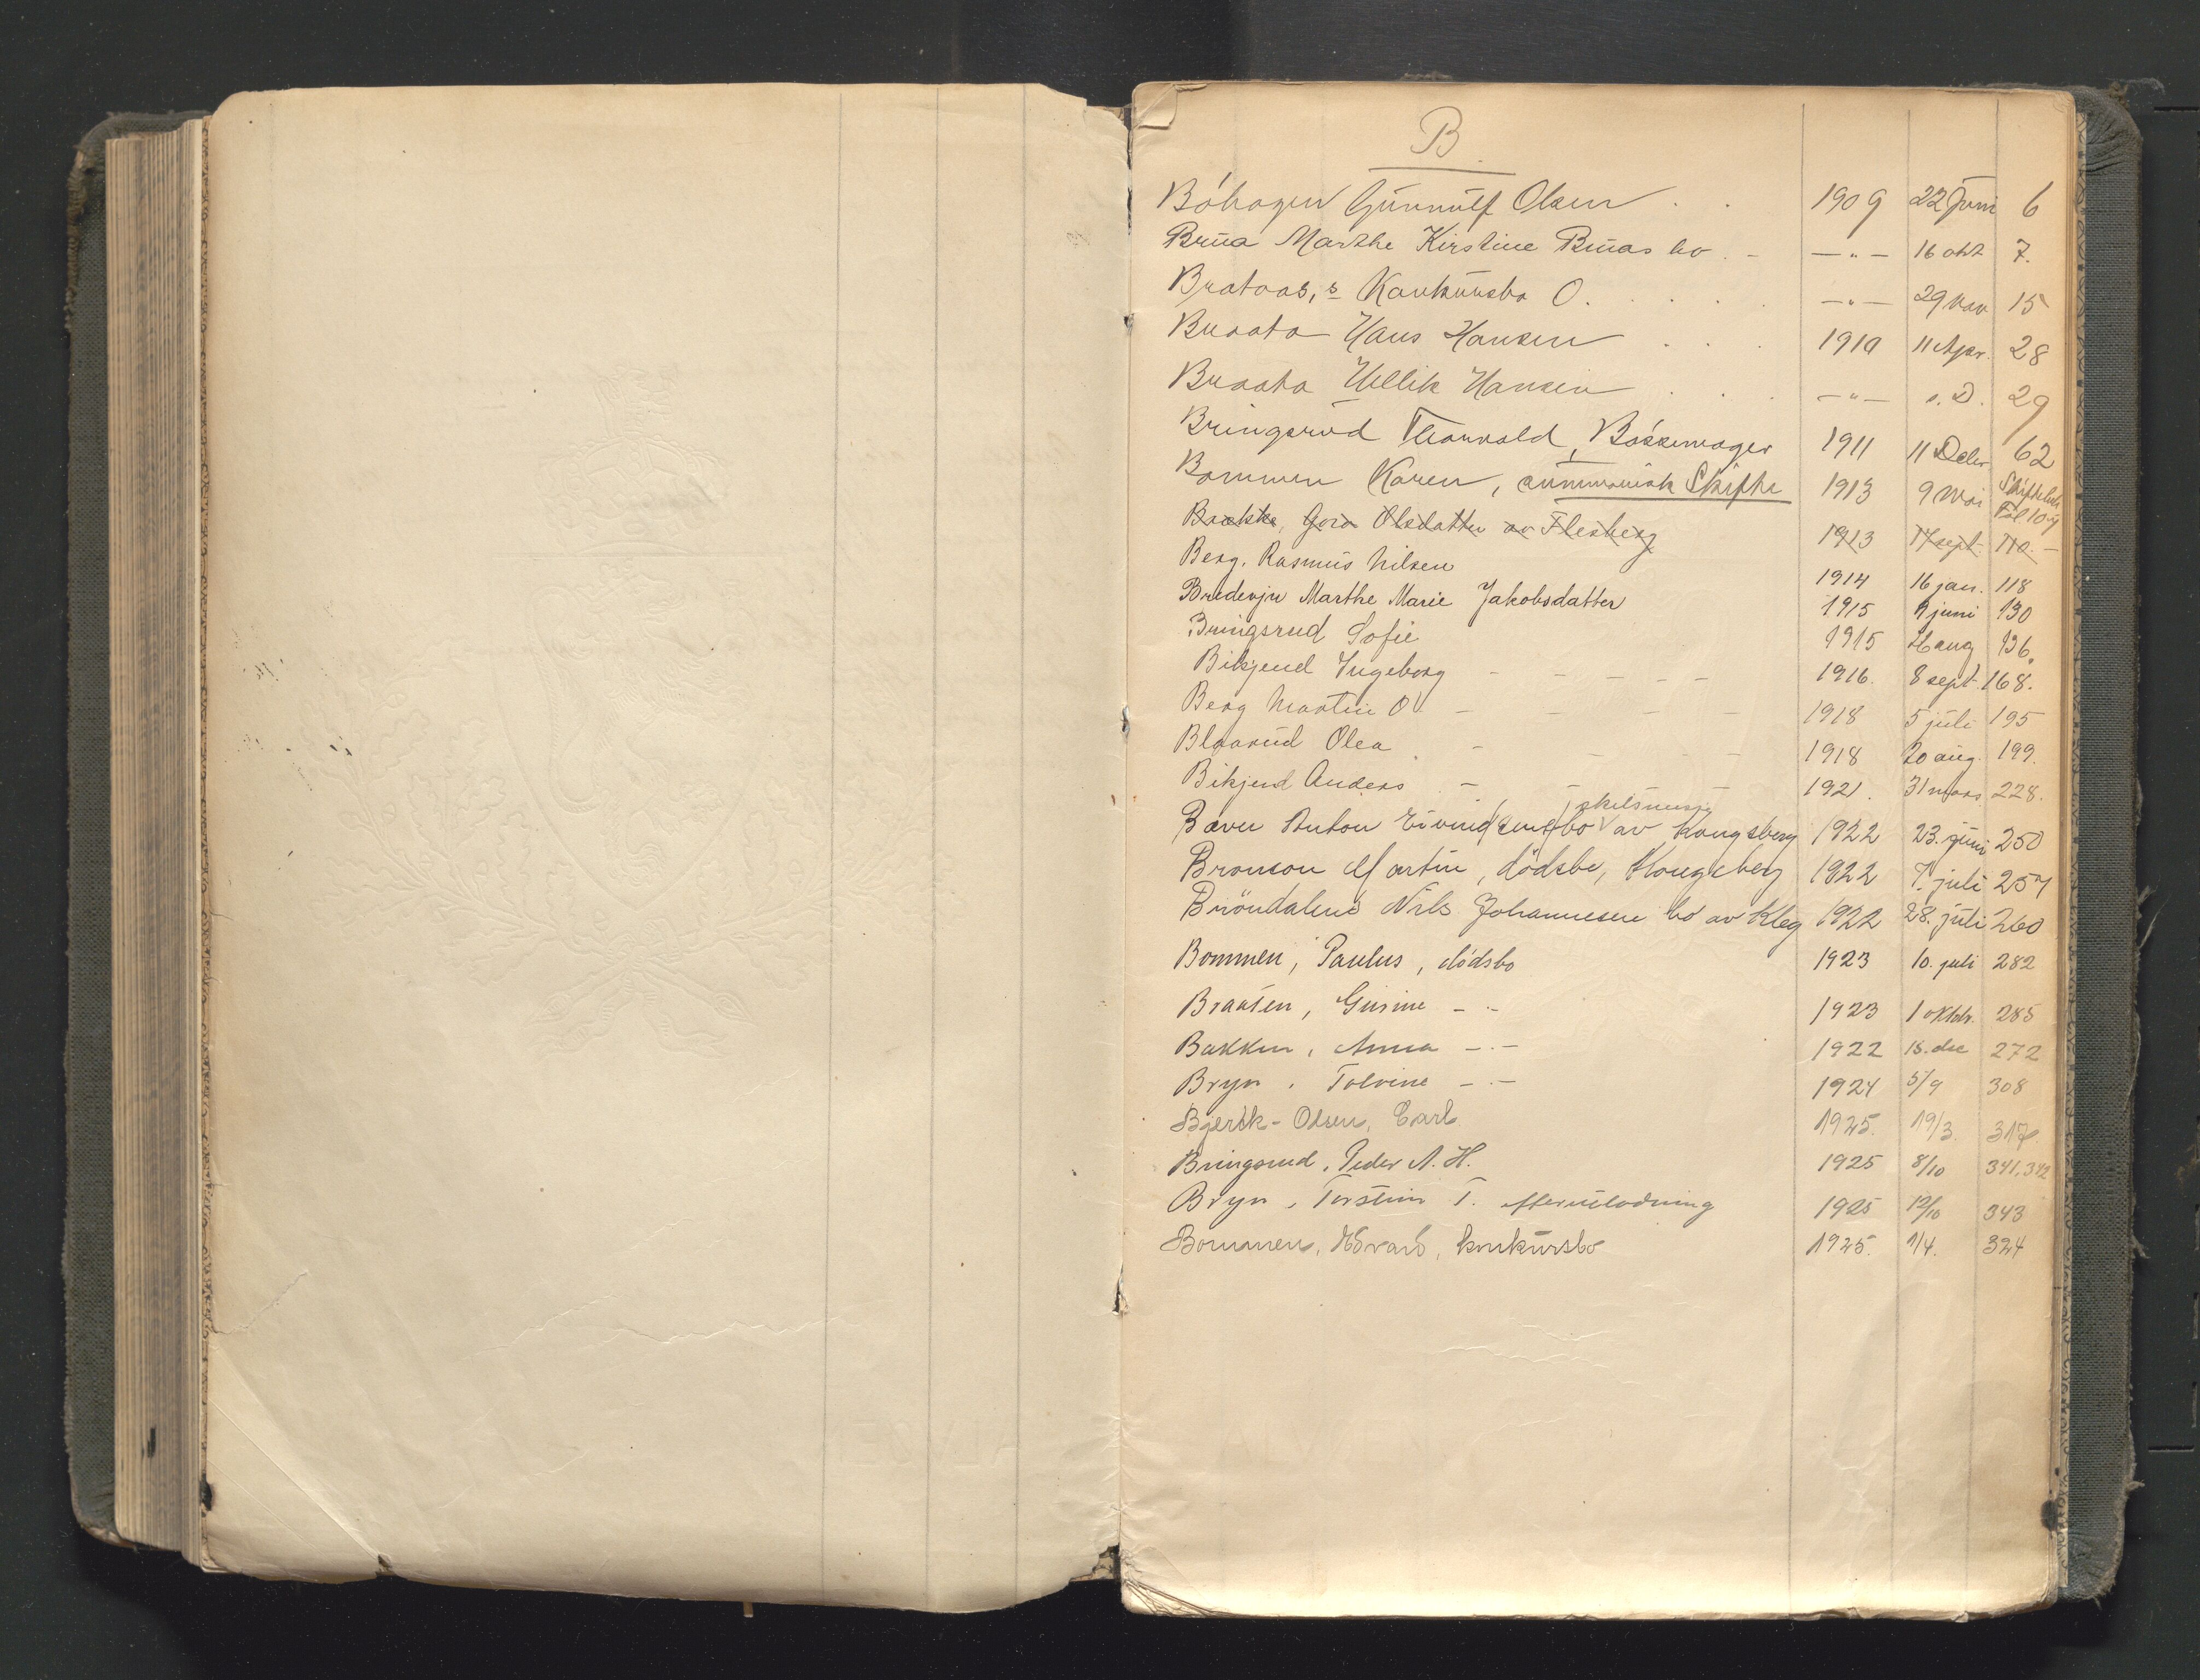 B
Bóhagen Gunnulf Olsen 1909 22 Juni 6
Brua Marthe Kirstine Bruas bo — " — 16 okt 7.
Brataas, s Konkursbo O. — " — 29 Nov 15
Braata Hans Hansen 1910 11 Apr. 28
Braata Hellik Hansen — " — s. D. 29
Bringsrud Thorvald, Bóssemager 1911 11 Debr 62
Bommen Karen, summarisk Skifte 1913 9 Mai Skiftebeh. Fol 10
Brekke, Goro Olsdatter av Flesberg 1913 17 sept 110. —
Berg. Rasmus Nilsen 1914 16 jan. 118
Bredevju Marthe Marie Jakobsdatter 1915 9 juni 130
Bringsrud Sofie 1915 aug 136.
Bikjend Ingeborg — — — — — 1916. 8 sept. 168.
Berg Martin O. — — — — 1918 5 juli 195
Blaarud Olea — — — — 1918 20 aug. 199.
Bikjend Anders — — — 1921. 31 mars 228.
skilsmisse
Bævu Anton Eivindsens bo av Kongsberg 1922 23. juni 250
Bronson Martin, dödsbo, Kongsberg 1922 7. juli 257
Bröndalens Nils Johannesen bo av Kbg 1922 28. juli 260
Bommen, Paulus, dödsbo 1923 10. juli 282
Braaten, Gurine — " — 1923 1 oktbr. 285
Bakken, Anna — " — 1922 18. dec 272
Bryn, Tolvine — " — 1924 5/9 308
Bjerk-Olsen, Carl 1925. 19/3. 317
Bringsrud, Peder A. H. 1925 8/10 341, 342
Bryn, Torstein T. efterutlodning 1925 12/10 343
Bommen, Edvard, konkursbo 1925. 1/4. 324